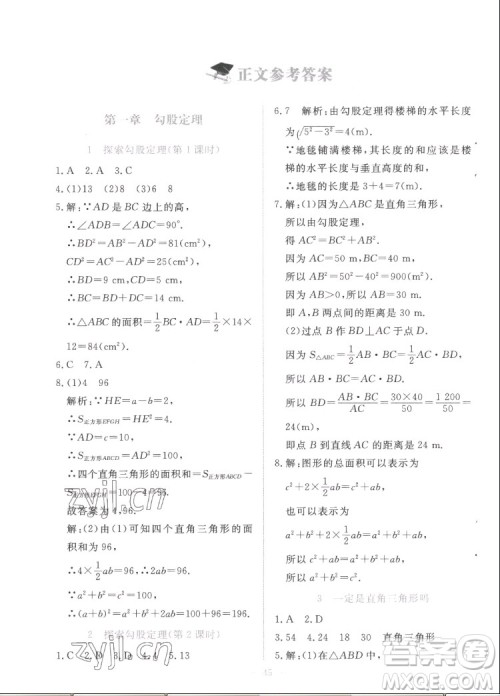 正文参考答案
第一章 勾股定理
1 探索勾股定理(第1课时)
1.A 2.A 3.C
4.(1)13 (2)8 (3)6 8
5.解:∵AD是BC边上的高,
∴∠ADB=∠ADC=90°.
∴BD²=AB²-AD²=81(cm²),
CD²=AC²-AD²=25(cm²),
∴BD=9 cm,CD=5 cm,
∴BC=BD+DC=14 cm.
∴△ABC的面积=1/2BC·AD=1/2×14×
12=84(cm²).
6.C 7.A
8.(1)4 96
解析:∵HE=a-b=2,
∴S正方形EFGH=HE²=4.
∵S正方形ABCD=AD²=c²=100,
∴四个直角三角形的面积和=S正方形ABCD-
S正方形EFGH=100-4=96.
故答案为4,96.
解:(2)由(1)可知四个直角三角形的面积
的和为96,
∴4×1/2ab=96,即2ab=96.
∵a²+b²=c²=100,
∴(a+b)²=a²+b²+2ab=100+96=196.
2 探索勾股定理(第2课时)
1.C 2.D 3.D 4.4 5.13
6.7 解析:由勾股定理得楼梯的水平长度
为√5²-3²=4(m).
∵地毯铺满楼梯,其长度的和应为楼梯的
水平长度与垂直高度的和,
∴地毯的长度是3+4=7(m).
7.解:(1)因为△ABC是直角三角形,
所以由勾股定理,
得AC²=BC²+AB².
因为AC=50 m,BC=40 m,
所以AB²=50²-40²=900(m²).
因为AB>0,所以AB=30 m.
即A,B两点间的距离是30 m.
(2)过点B作BD⊥AC于点D.
因为S△ABC=1/2AB·BC=1/2AC·BD,
所以AB·BC=AC·BD.
所以BD=AB·BC/AC=30×40/50=1 200/50=
24(m),
即点B到直线AC的距离是24 m.
8.解:图形的总面积可以表示为
c²+2×1/2ab=c²+ab,
也可以表示为
a²+b²+2×1/2ab=a²+b²+ab,
所以c²+ab=a²+b²+ab,
所以a²+b²=c².
3 一定是直角三角形吗
1.A 2.D
3.54 4.24 18 30 直角三角形
zyjl.cn
zyjl.cn
作业精灵